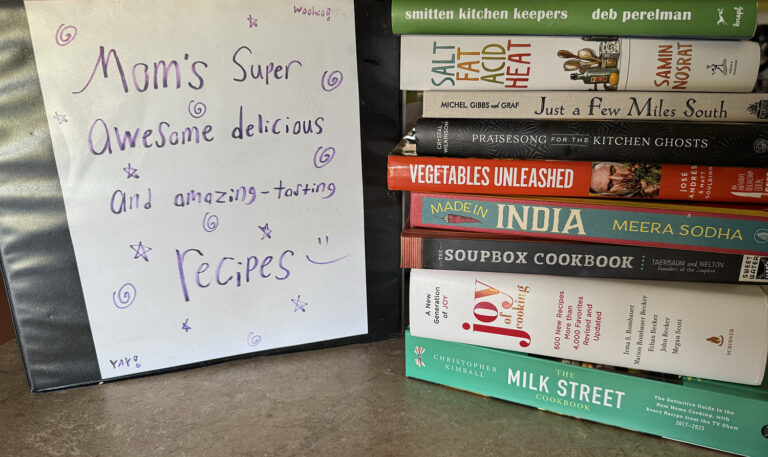 Woohoo!
Mom's Super
awesome delicious
and amazing-tasting
recipes
YAY!
smitten kitchen keepers deb perelman
knopf
SALT
FAT
ACID
HEAT
SAMIN
NOSRAT
MICHEL, GIBBS and GRAF Just a Few Miles South
CRYSTAL
WILKINSON
PRAISESONG FOR THE KITCHEN GHOSTS
VEGETABLES UNLEASHED
JOSÉ
ANDRÉS
& MATT
GOULDING
MADE IN
INDIA MEERA SODHA
THE
SOUPBOX COOKBOOK
TAERBAUM and MELTON
Founders of the Soupbox
SWEET
WATER
A New
Generation
of JOY
joy
of cooking
600 New Recipes
More than
4,000 Favorites
Revised and
Updated
Irma S. Rombauer
Marion Rombauer Becker
Ethan Becker
John Becker
Megan Scott
SCRIBNER
CHRISTOPHER
KIMBALL
THE
MILK STREET
COOKBOOK
The Definitive Guide to the
New Home Cooking, with
Every Recipe from the TV Show
2017–2023